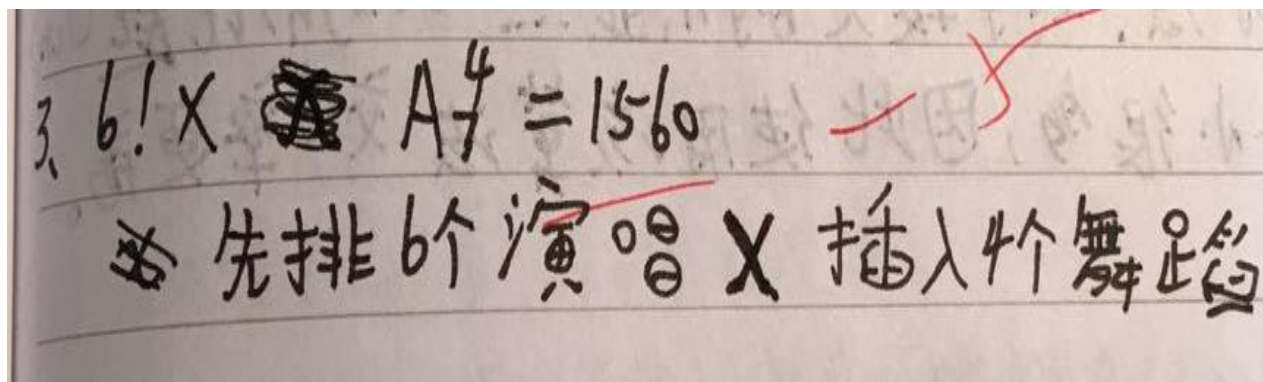 3、6!×A₇⁴=1560
先排6个演唱×插入4个舞蹈